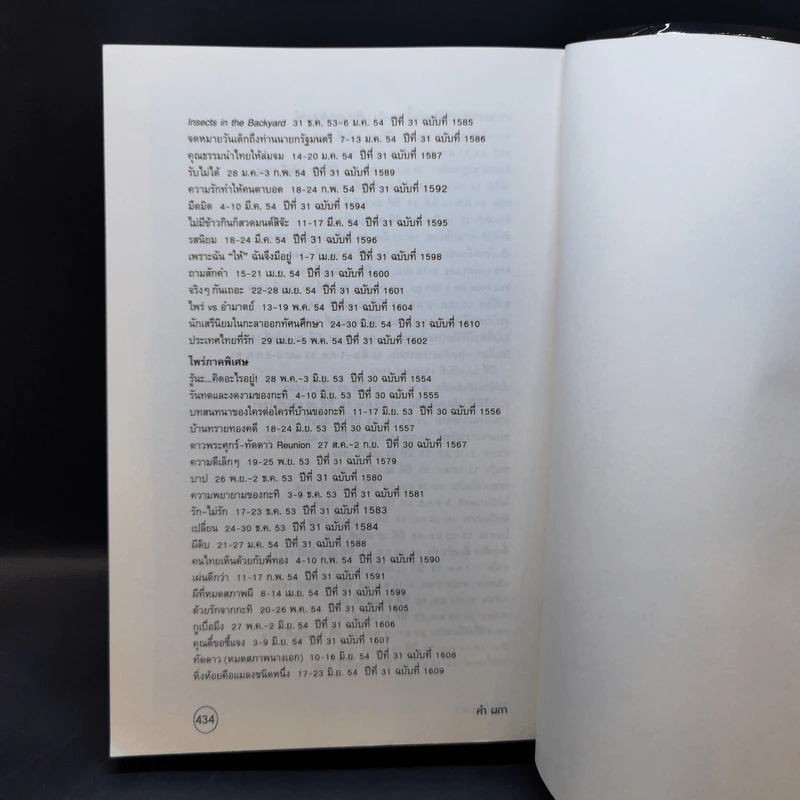 Insects in the Backyard 31 ธ.ค. 53-6 ม.ค. 54 ปีที่ 31 ฉบับที่ 1585
จดหมายวันเด็กถึงท่านนายกรัฐมนตรี 7-13 ม.ค. 54 ปีที่ 31 ฉบับที่ 1586
คุณธรรมนำไทยให้ล่มจม 14-20 ม.ค. 54 ปีที่ 31 ฉบับที่ 1587
รับไม่ได้ 28 ม.ค.-3 ก.พ. 54 ปีที่ 31 ฉบับที่ 1589
ความรักทำให้คนตาบอด 18-24 ก.พ. 54 ปีที่ 31 ฉบับที่ 1592
มืดมิด 4-10 มี.ค. 54 ปีที่ 31 ฉบับที่ 1594
ไม่มีข้าวกินก็สวดมนต์สิจ๊ะ 11-17 มี.ค. 54 ปีที่ 31 ฉบับที่ 1595
รสนิยม 18-24 มี.ค. 54 ปีที่ 31 ฉบับที่ 1596
เพราะฉัน "ให้" ฉันจึงมีอยู่ 1-7 เม.ย. 54 ปีที่ 31 ฉบับที่ 1598
ถามสักคำ 15-21 เม.ย. 54 ปีที่ 31 ฉบับที่ 1600
จริงๆ กันเถอะ 22-28 เม.ย. 54 ปีที่ 31 ฉบับที่ 1601
ไพร่ vs อำมาตย์ 13-19 พ.ค. 54 ปีที่ 31 ฉบับที่ 1604
นักเสรีนิยมในกะลาออกทัศนศึกษา 24-30 มิ.ย. 54 ปีที่ 31 ฉบับที่ 1610
ประเทศไทยที่รัก 29 เม.ย.-5 พ.ค. 54 ปีที่ 31 ฉบับที่ 1602
ไพร่ภาคพิเศษ
รู้นะ...คิดอะไรอยู่! 28 พ.ค.-3 มิ.ย. 53 ปีที่ 30 ฉบับที่ 1554
รันทดและงดงามของกะทิ 4-10 มิ.ย. 53 ปีที่ 30 ฉบับที่ 1555
บทสนทนาของใครต่อใครที่บ้านของกะทิ 11-17 มิ.ย. 53 ปีที่ 30 ฉบับที่ 1556
บ้านทรายทองคดี 18-24 มิ.ย. 53 ปีที่ 30 ฉบับที่ 1557
ดาวพระศุกร์-ทัดดาว Reunion 27 ส.ค.-2 ก.ย. ปีที่ 30 ฉบับที่ 1567
ความดีเล็กๆ 19-25 พ.ย. 53 ปีที่ 31 ฉบับที่ 1579
บาป 26 พ.ย.-2 ธ.ค. 53 ปีที่ 31 ฉบับที่ 1580
ความพยายามของกะทิ 3-9 ธ.ค. 53 ปีที่ 31 ฉบับที่ 1581
รัก-ไม่รัก 17-23 ธ.ค. 53 ปีที่ 31 ฉบับที่ 1583
เปลี่ยน 24-30 ธ.ค. 53 ปีที่ 31 ฉบับที่ 1584
ผีดิบ 21-27 ม.ค. 54 ปีที่ 31 ฉบับที่ 1588
คนไทยเห็นด้วยกับพี่ทอง 4-10 ก.พ. 54 ปีที่ 31 ฉบับที่ 1590
เผ่นดีกว่า 11-17 ก.พ. 54 ปีที่ 31 ฉบับที่ 1591
ผีที่หมดสภาพผี 8-14 เม.ย. 54 ปีที่ 31 ฉบับที่ 1599
ด้วยรักจากกะทิ 20-26 พ.ค. 54 ปีที่ 31 ฉบับที่ 1605
กูเบื่อมึง 27 พ.ค.-2 มิ.ย. 54 ปีที่ 31 ฉบับที่ 1606
คุณดี๋ขอชี้แจง 3-9 มิ.ย. 54 ปีที่ 31 ฉบับที่ 1607
ทัดดาว (หมดสภาพนางเอก) 10-16 มิ.ย. 54 ปีที่ 31 ฉบับที่ 1608
หิ่งห้อยคือแมลงชนิดหนึ่ง 17-23 มิ.ย. 54 ปีที่ 31 ฉบับที่ 1609
434 คำ ผกา